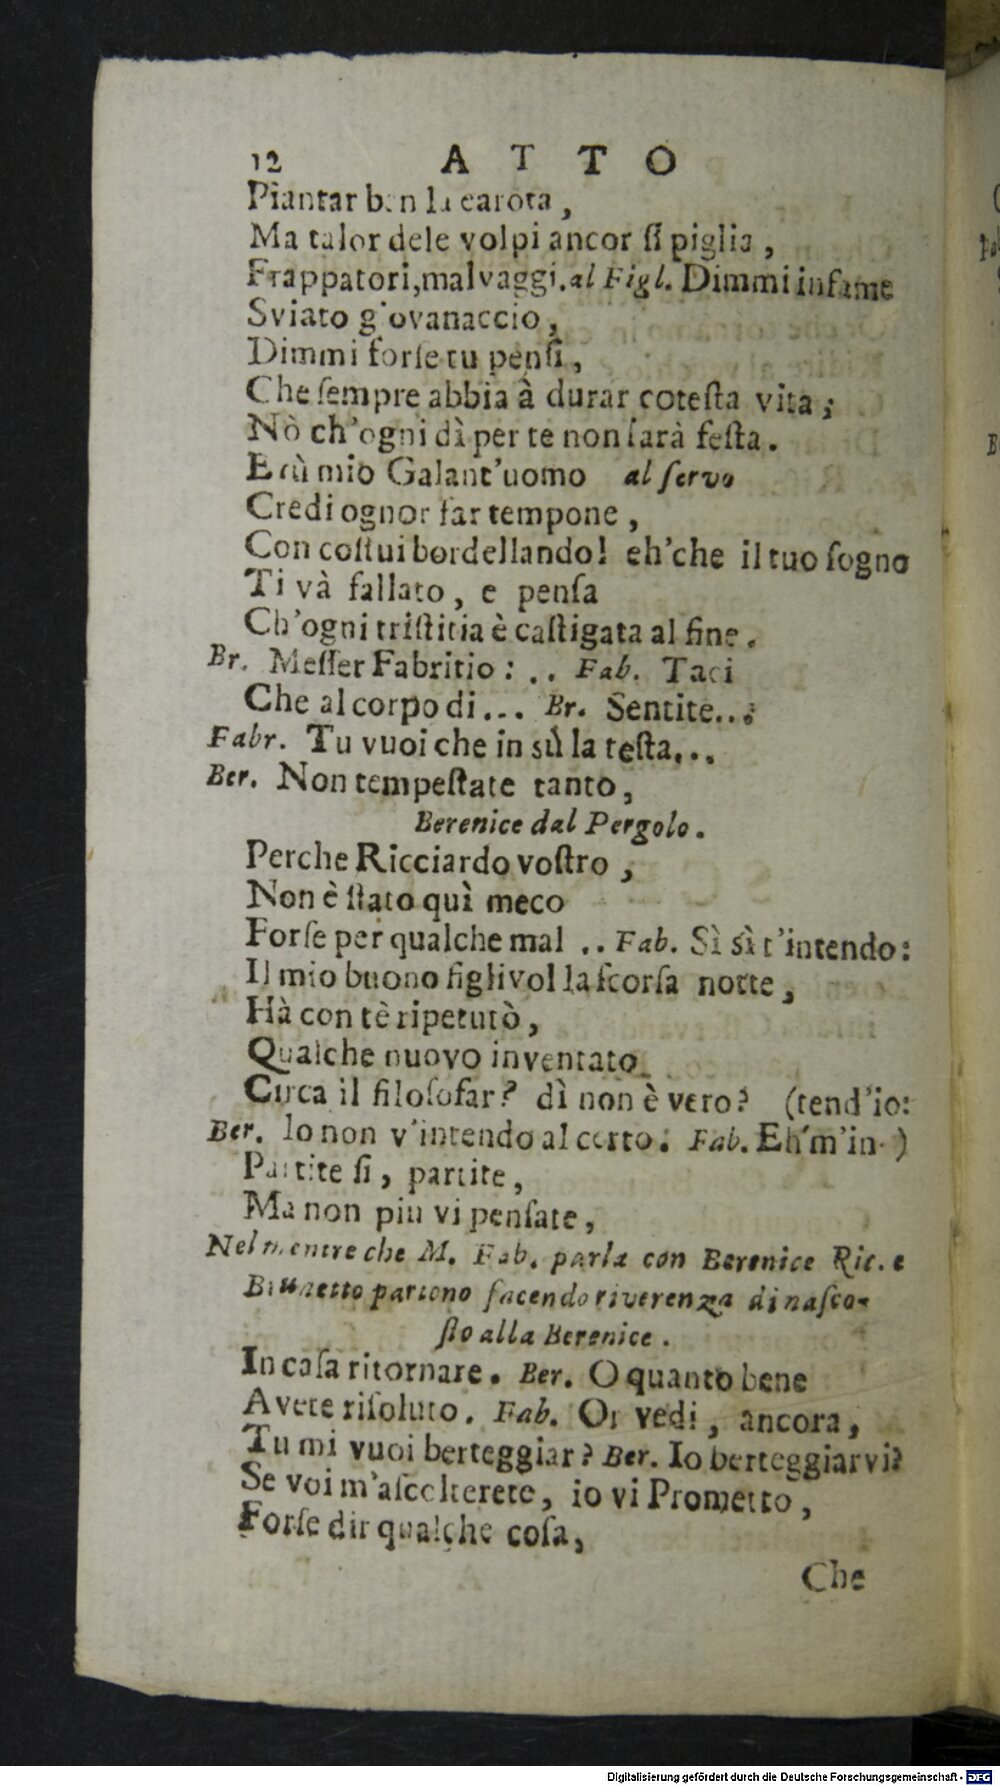 12 ATTO
Piantar ben la carota,
Ma talor dele volpi ancor ſi piglia,
Frappatori,malvaggi.al Figl. Dimmi infame
Sviato giovanaccio,
Dimmi forſe tu penſi,
Che ſempre abbia à durar coteſta vita;
Nò ch'ogni dì per te non ſarà feſta.
E tù mio Galant'uomo al ſervo
Credi ognor far tempone,
Con coſtui bordellando! eh'che il tuo ſogno
Ti và fallato, e penſa
Ch'ogni triſtitia è caſtigata al fine.
Br. Meſſer Fabritio: .. Fab. Taci
Che al corpo di... Br. Sentite...
Fabr. Tu vuoi che in sù la teſta...
Ber. Non tempeſtate tanto,
Berenice dal Pergolo.
Perche Ricciardo voſtro,
Non è ſtato quì meco
Forſe per qualche mal .. Fab. Sì sì t'intendo:
Il mio buono figlivol la ſcorſa notte,
Hà con tè ripetutò,
Qualche nuovo inventato
Circa il filoſofar? dì non è vero? (tend'io:
Ber. Io non v'intendo al certo. Fab. Eh'm'in-)
Partite ſi, partite,
Ma non piu vi penſate,
Nel mentre che M. Fab. parla con Berenice Ric. e
Brunetto partono facendo riverenza di naſco-
ſto alla Berenice.
In caſa ritornare. Ber. O quanto bene
Avete riſoluto. Fab. Or vedi, ancora,
Tu mi vuoi berteggiar? Ber. Io berteggiarvi?
Se voi m'aſcolterete, io vi Prometto,
Forſe dir qualche coſa,
Che
Digitalisierung gefördert durch die Deutsche Forschungsgemeinschaft - DFG